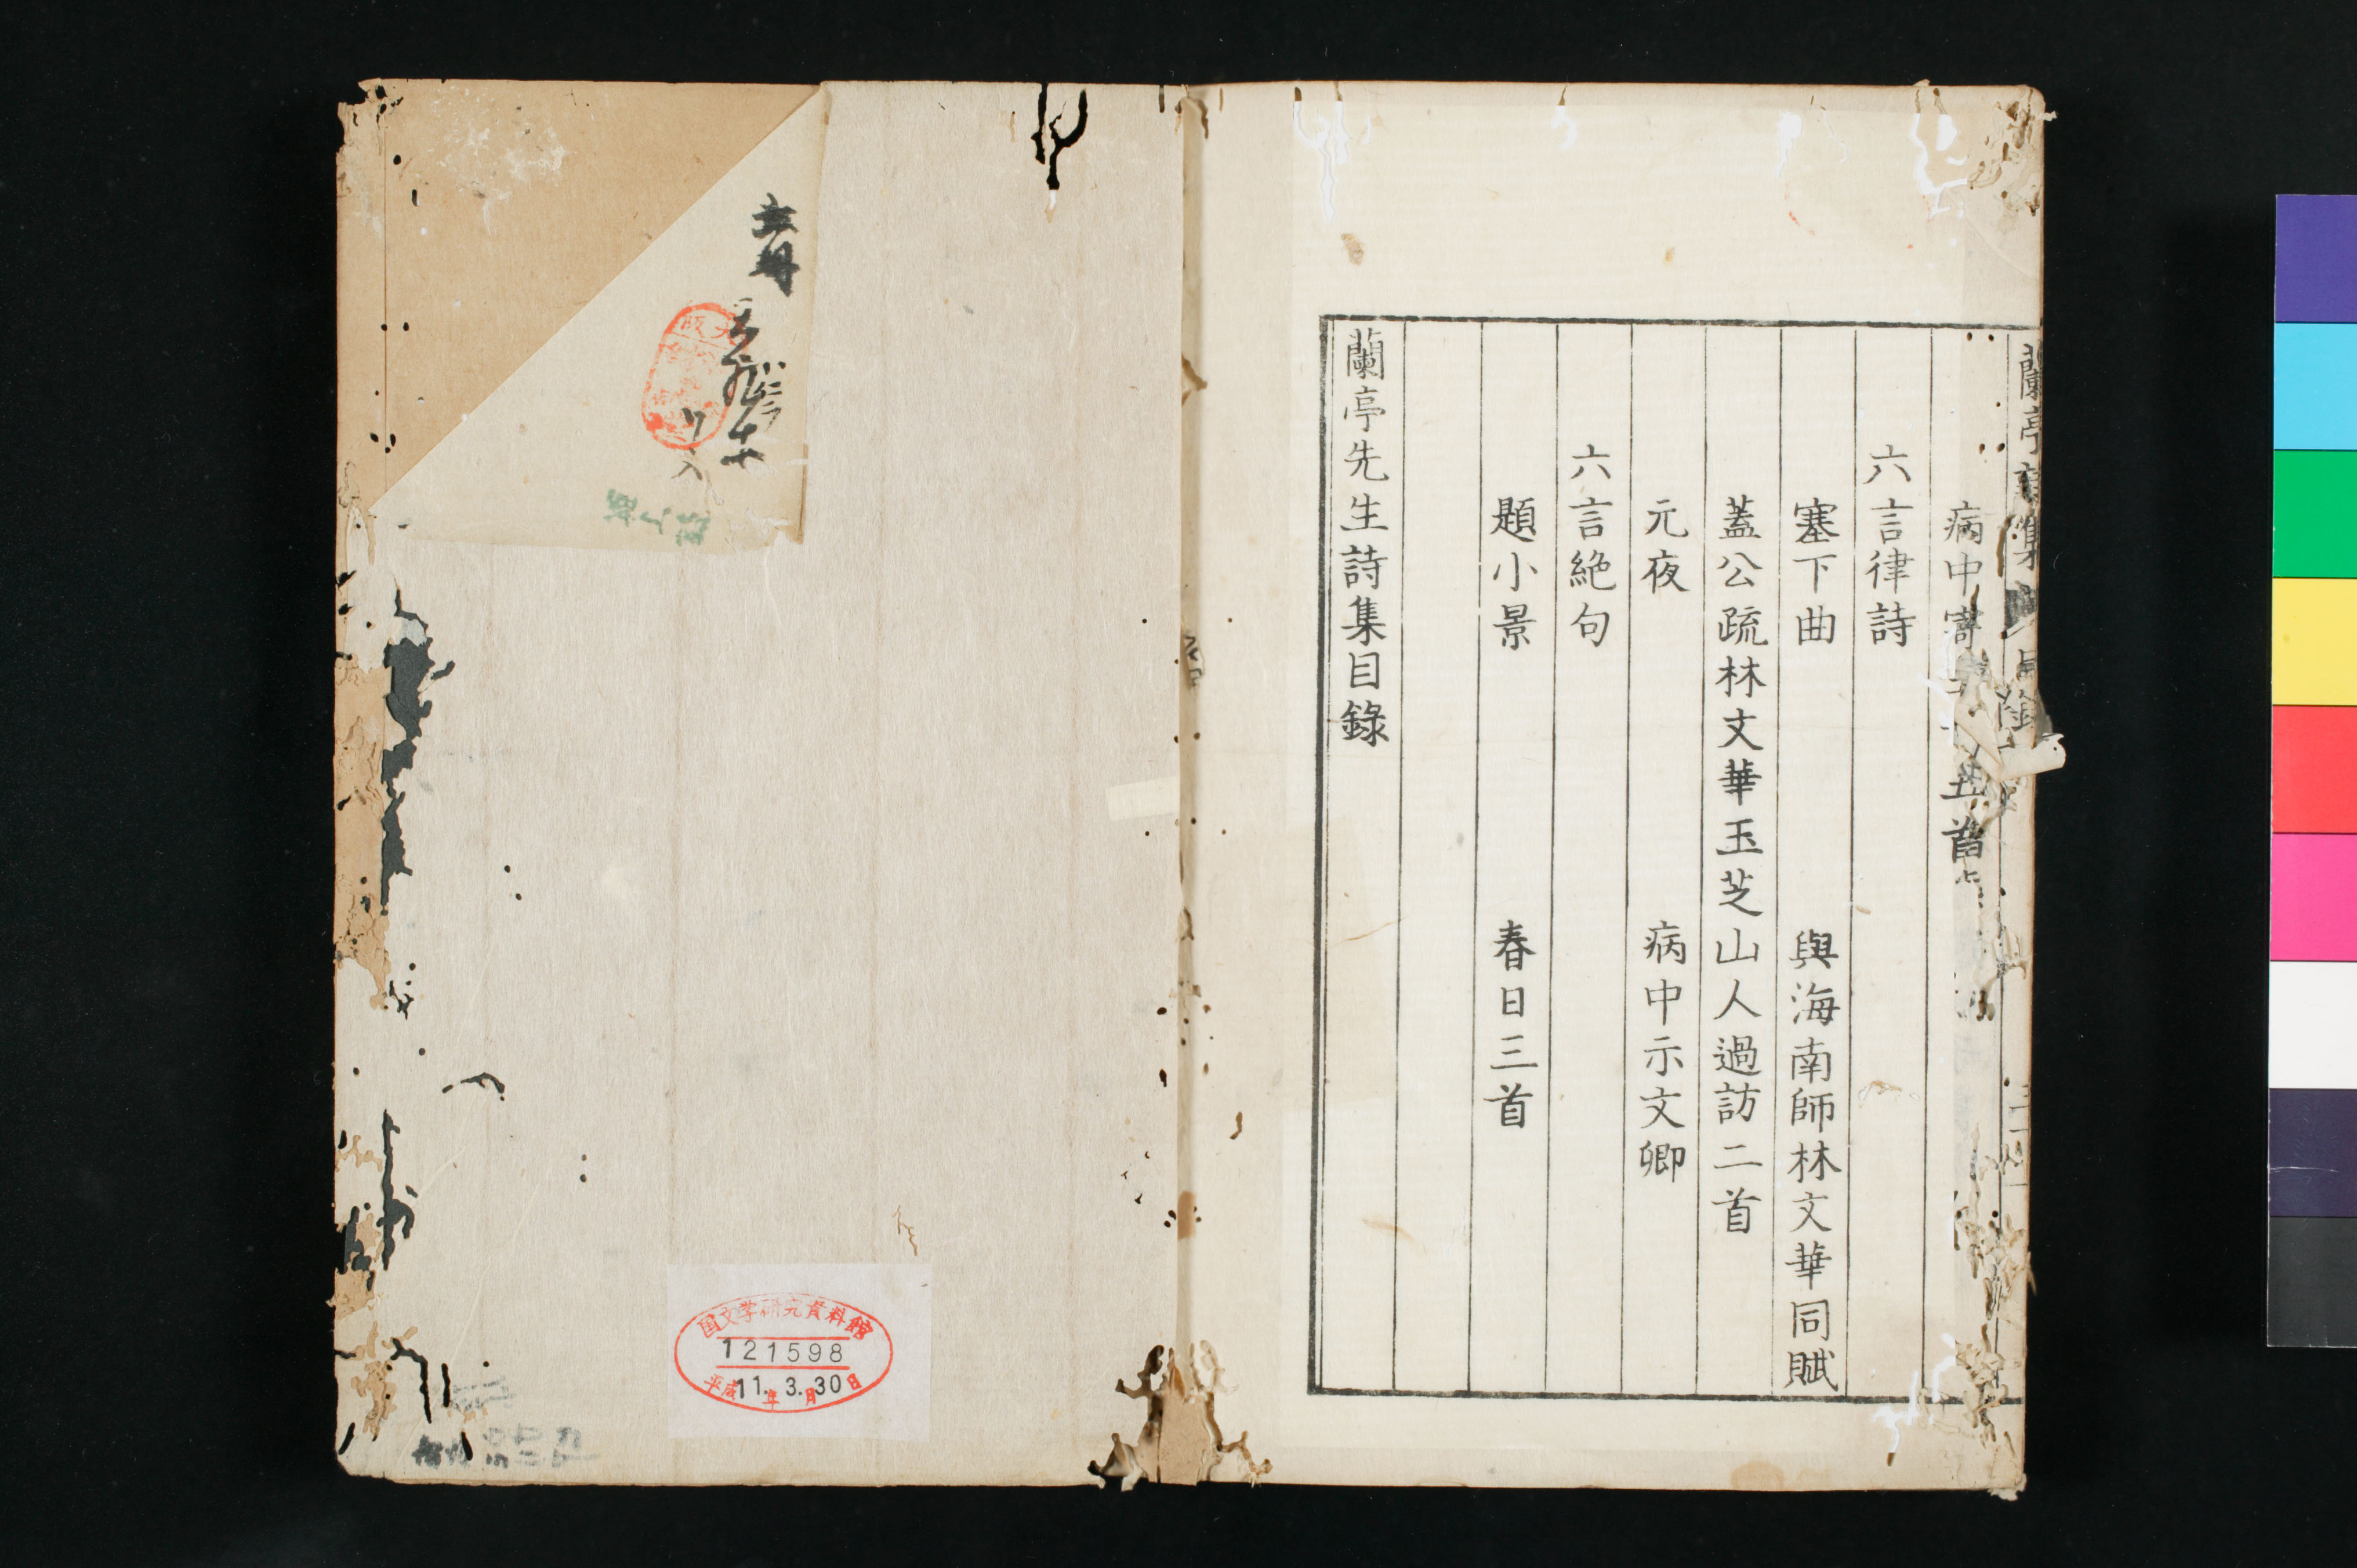 病中寄
五首
六言律詩
塞下曲
與海南師林文華同賦
蓋公疏林文華玉芝山人過訪二首
元夜
病中示文卿
六言絶句
題小景
春日三首
蘭亭先生詩集目錄
国文学研究資料館
121598
平成11年3月30日